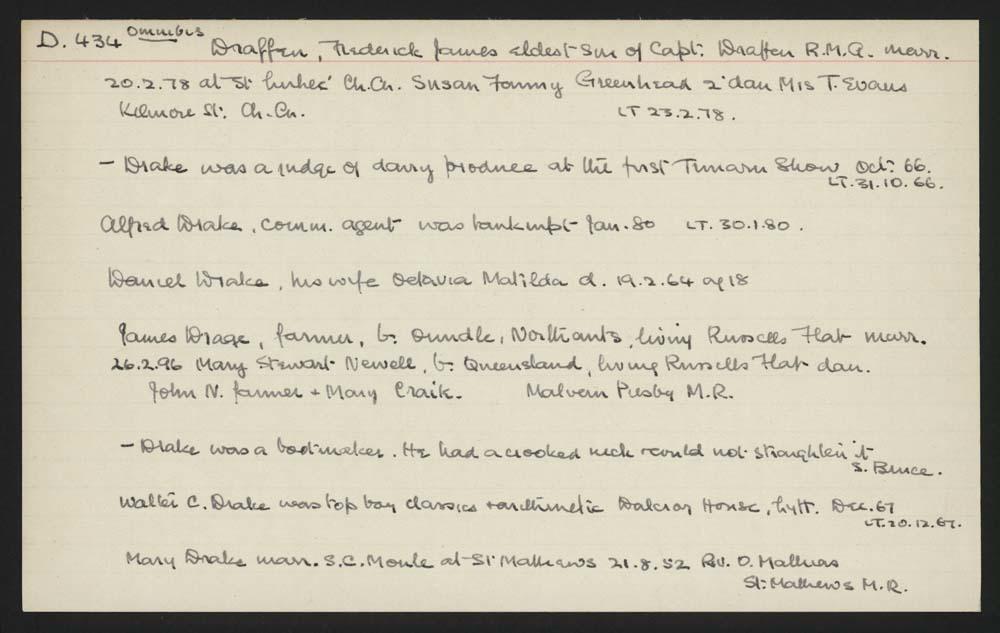 D. 434 Omnibus Draffen, Frederick James eldest son of Capt: Draffen R.M.A. marr.
20.2.78 at St Lukes' Ch.Ch. Susan Fanny Greenhead 2' dau Mrs T. Evans
Kilmore St: Ch.Ch. LT 23.2.78.
- Drake was a judge of dairy produce at the first Timaru Show Oct: 66.
LT. 31.10.66.
Alfred Drake, comm. agent was bankrupt Jan. 80 LT. 30.1.80.
Daniel Drake, his wife Octavia Matilda d. 19.2.64 ag 18
James Drage, farmer, b. Oundle, Northants, living Russells Flat marr.
26.2.96 Mary Stewart Newell, b. Queensland, living Russells Flat dau.
John N. farmer + Mary Craik. Malvern Presby M.R.
- Drake was a bootmaker. He had a crooked neck + could not straighten it
S. Bruce.
Walter C. Drake was top boy classics + arithmetic Dalcroy House, Lytt. Dec. 67
LT. 20.12.67.
Mary Drake marr. S.C. Moule at St Mathews 21.8.52 Rev. O. Mathias
St: Mathews M.R.